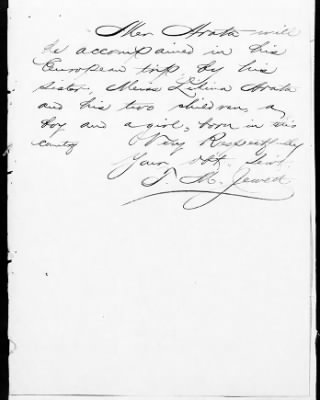 Mr Arata will
be accompained in his
European trip by his
sister, Miss Arata
and his two children, a
boy and a girl, born in this
country Very Respectfully
Your Obt. Servt.
T. M. Jewett